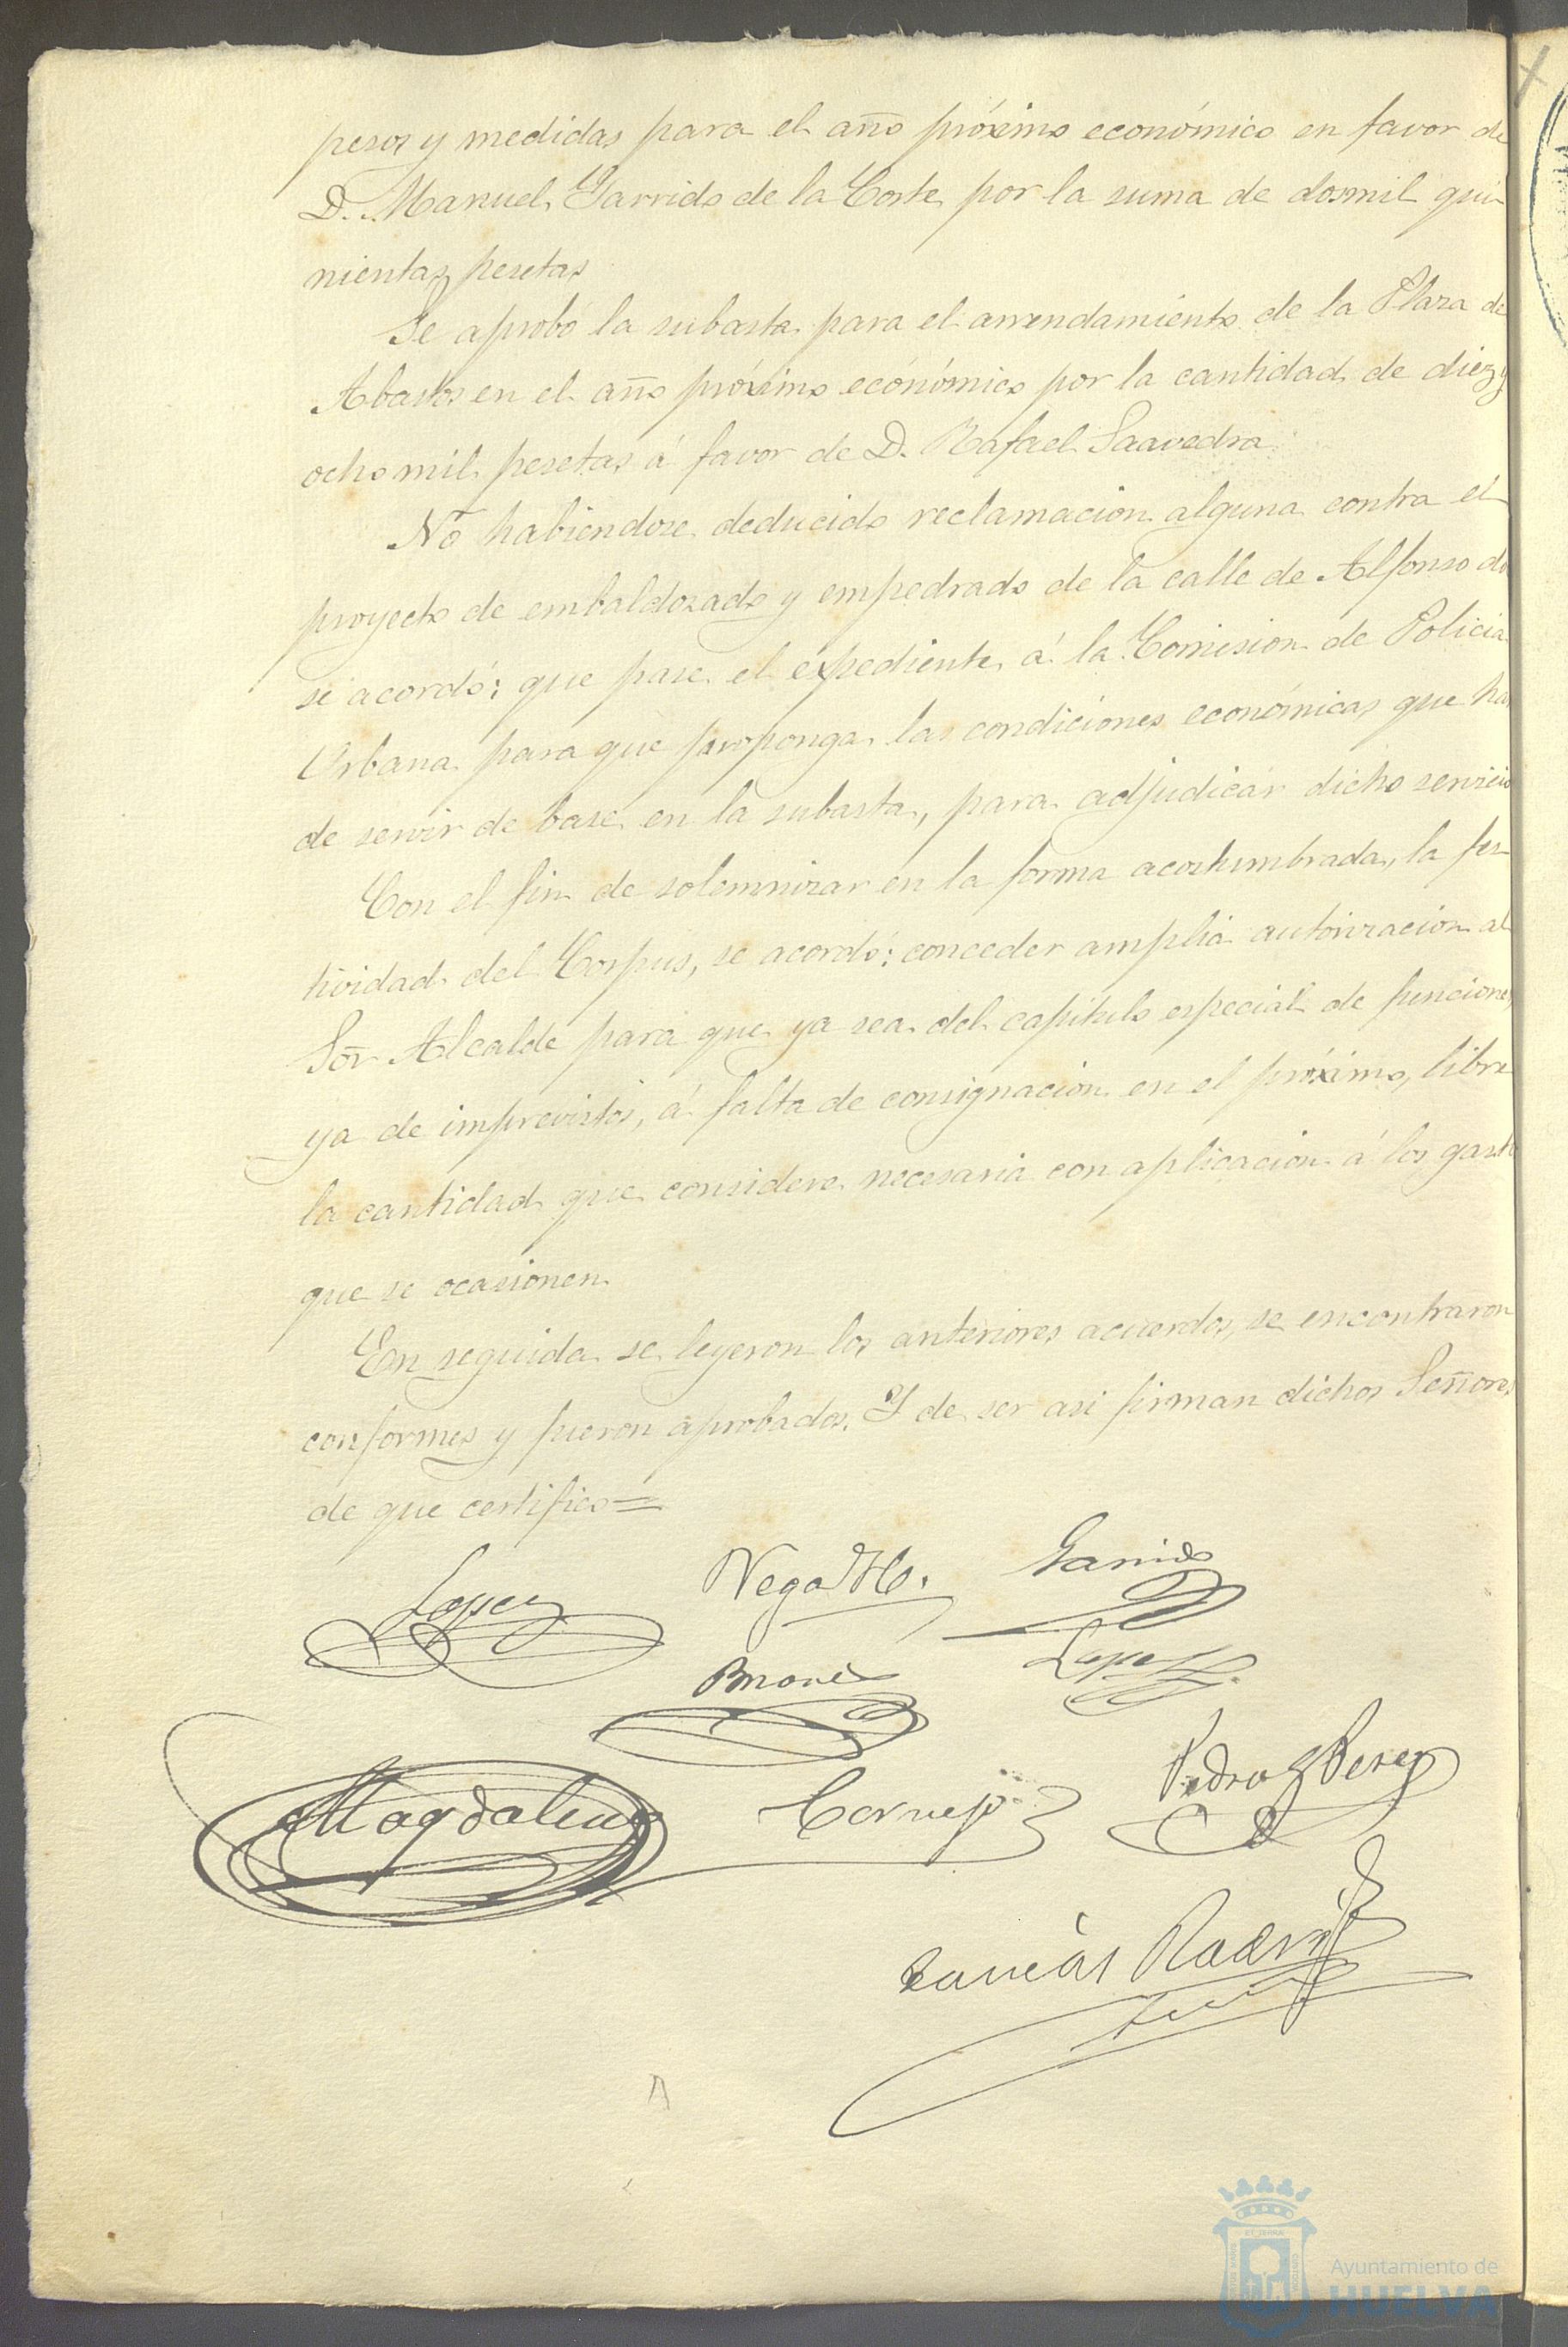 pesos y medidas para el año próximo económico en favor de
D. Manuel Garrido de la Corte por la suma de dosmil qui-
nientas pesetas
Se aprobó la subasta para el arrendamiento de la Plaza de
Abastos en el año próximo económico por la cantidad de diez y
ocho mil pesetas á favor de D. Rafael Saavedra
No habiendose deducido reclamacion alguna contra el
proyecto de embaldozado y empedrado de la calle de Alfonso
se acordó: que pase el expediente á la Comision de Policia
Urbana para que proponga las condiciones económicas que han
de servir de base en la subasta, para adjudicar dicho servicio
Con el fin de solemnizar en la forma acostumbrada, la fes-
tividad del Corpus, se acordó: conceder amplia autorizacion al
Sor Alcalde para que ya sea del capitulo especial de funciones,
ya de imprevistos, á falta de consignacion en el próximo, libre
la cantidad que considere necesaria con aplicacion á los gastos
que se ocasionen.
En seguida se leyeron los anteriores acuerdos, se encontraron
conformes y fueron aprobados. Y de ser asi firman dichos Señores
de que certifico=
Lopez
Vega
Garrido
Lopez
Magdalena
Cornejo
Pedro Perez
Ayuntamiento de
HUELVA